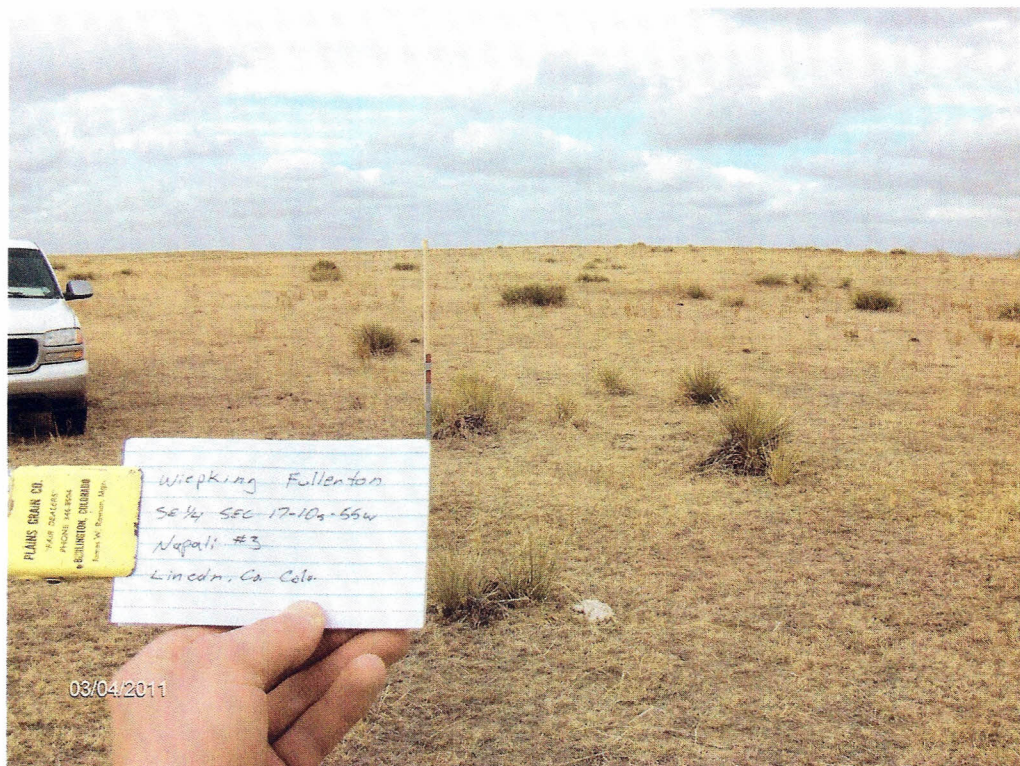 PLAINS GRAIN CO.
"FAIR DEALERS"
PHONE 346-8504
BURLINGTON, COLORADO
James W. Rawson, Mgr.
Wiepking Fullerton
SE 1/4 SEC 17-10s-55w
Napali #3
Lincoln. Co. Colo.
03/04/2011